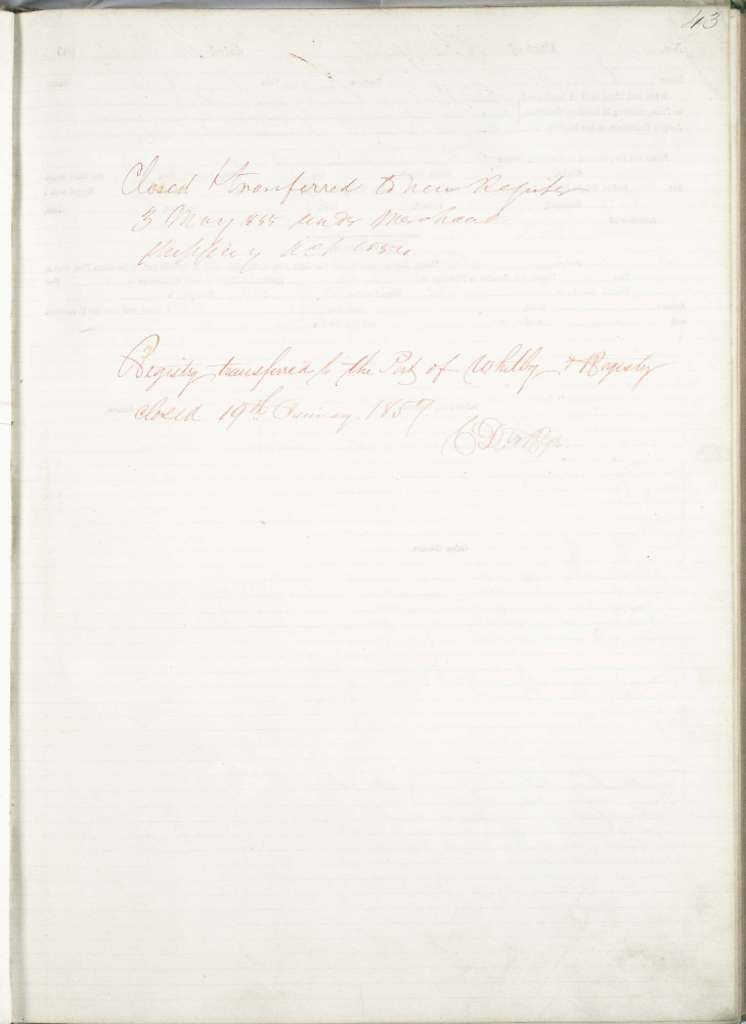 43
Closed & transferred to new Register
3 May 1855 under Merchant
Shipping Act 1854
Registry transferred to the Port of Whitby & Registry
closed 19th January 1857